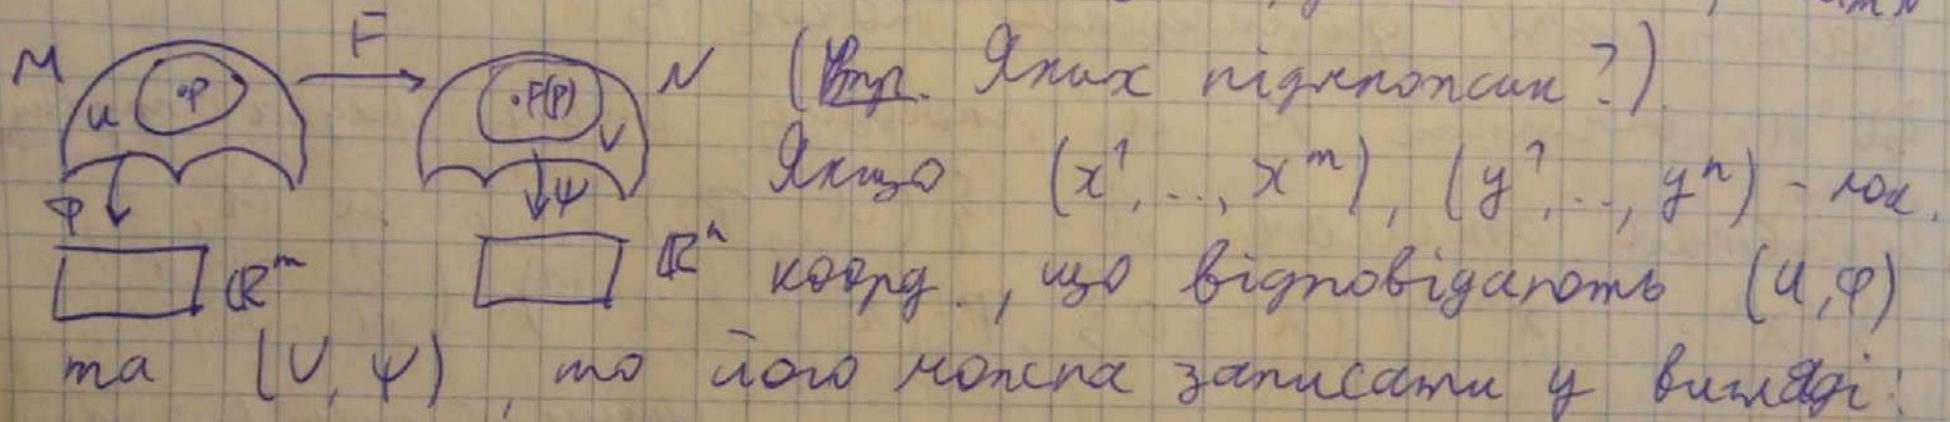 M F N (Впр. Яких підмножин?).
U •p •F(p) V
Якщо (x¹, .., xᵐ), (y¹, .., yⁿ) – лок.
φ ψ
ℝᵐ ℝⁿ коорд., що відповідають (U, φ)
та (V, ψ), то його можна записати у вигляді: